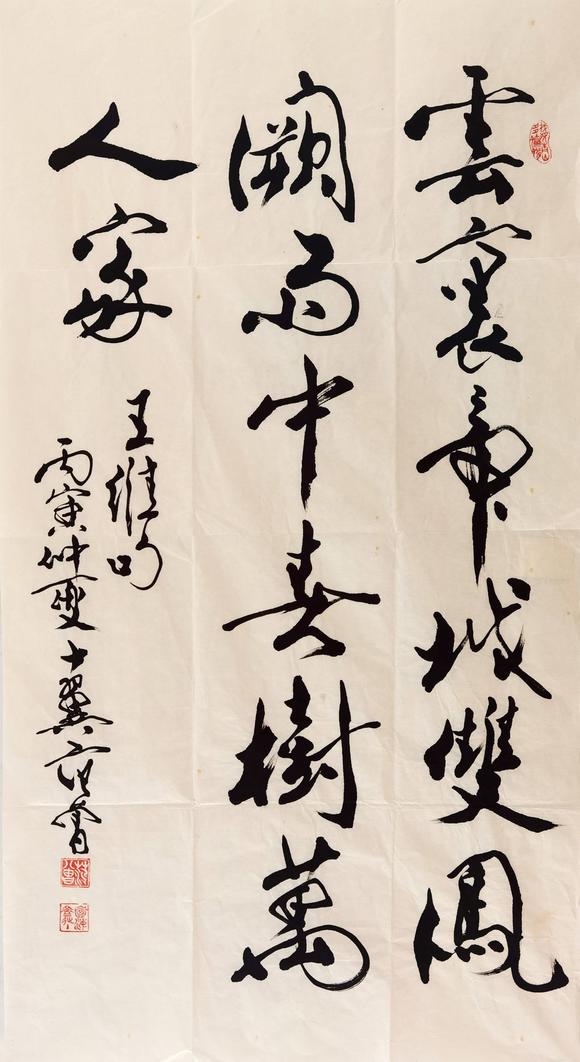 雲裏帝城雙鳳
闕雨中春樹萬
人家
王維句
丙寅仲夏十翼范曾
范曾